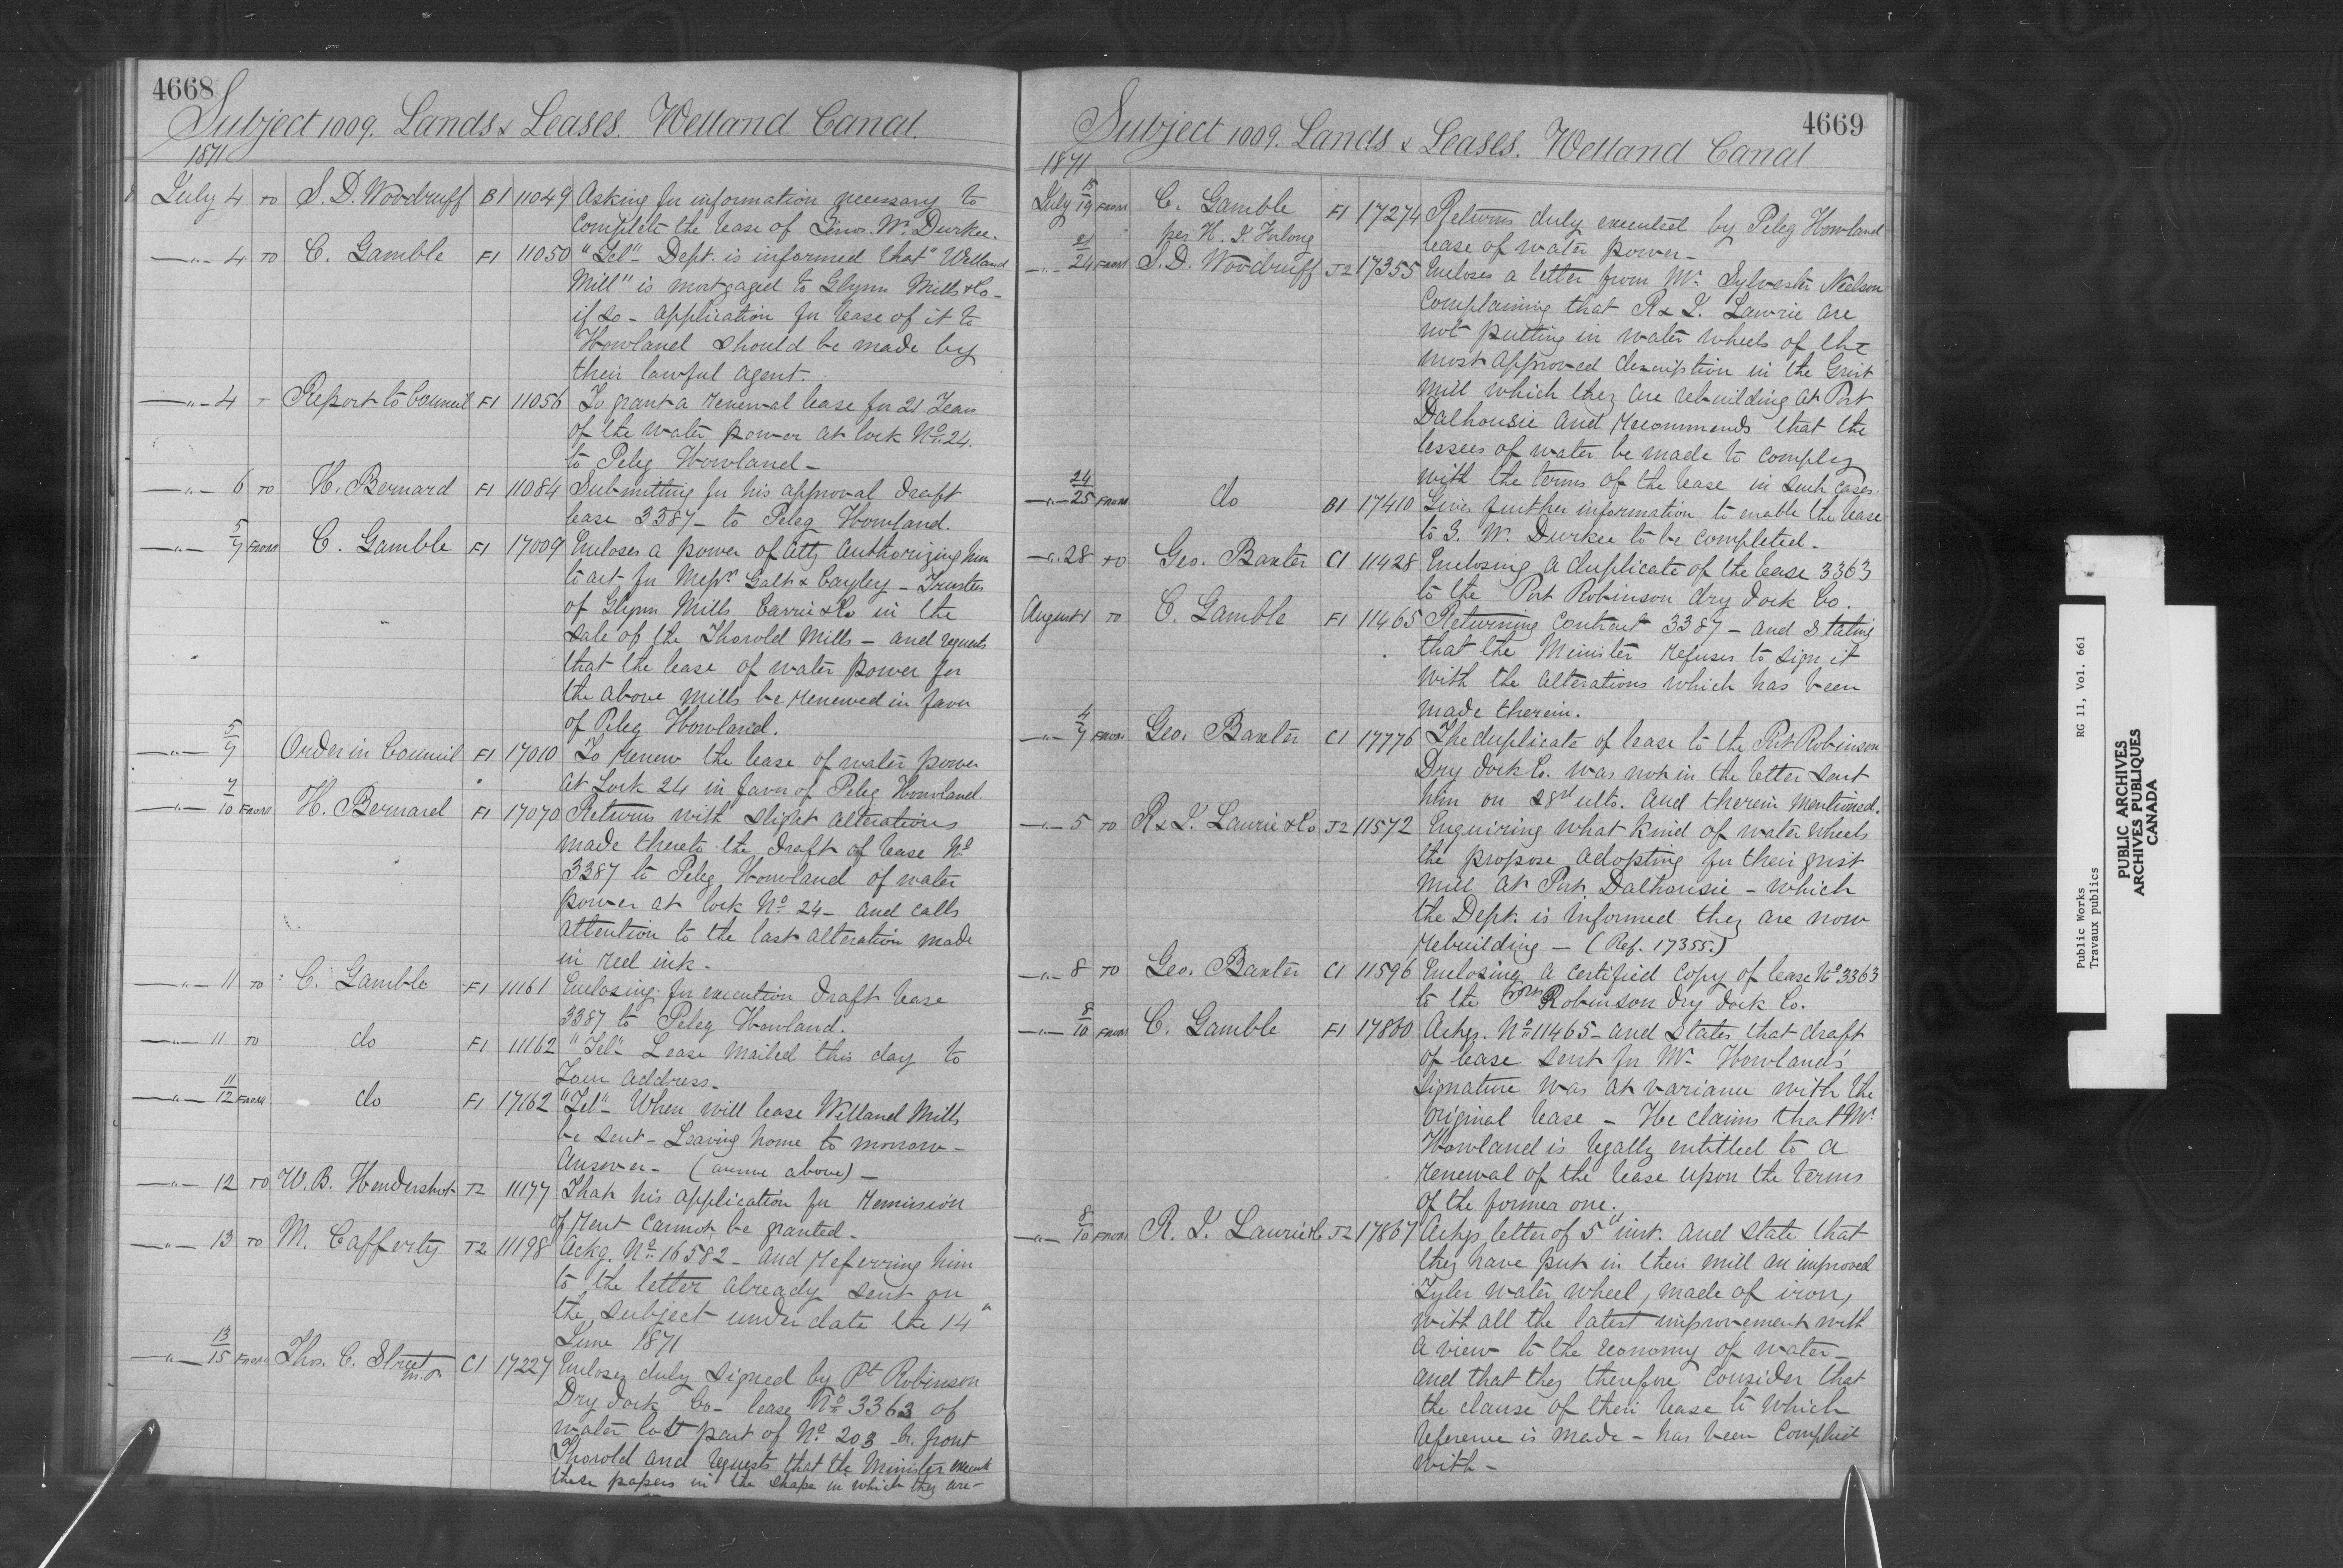 4668
Subject 1009. Lands & Leases. Welland Canal.
1871
July 4 TO S. D. Woodruff B1 11049 Asking for information necessary to
complete the lease of Wm. Durkee.
—"— 4 TO C. Gamble F1 11050 "Tel" Dept. is informed that "Welland
Mill" is mortgaged to Glynn Mills & Co—
if so — application for lease of it to
Howland should be made by
their lawful agent.
—"— 4 Report to Council F1 11056 To grant a renewal lease for 21 Years
of the water power at lock No. 24.
to Peleg Howland —
—"— 6 TO H. Bernard F1 11084 Submitting for his approval draft
lease 3387 — to Peleg Howland.
—"— 5/7 FROM C. Gamble F1 17009 Encloses a power of atty authorizing him
to act for Messrs Galt & Cayley — Trustees
of Glynn Mills Currie & Co in the
sale of the Thorold Mills — and requests
that the lease of water power for
the above mills be renewed in favor
of Peleg Howland.
—"— 5/7 Order in Council F1 17010 To renew the lease of water power
at Lock 24 in favor of Peleg Howland.
—"— 7/10 FROM H. Bernard F1 17070 Returns with slight alterations
made thereto the draft of lease No
3387 to Peleg Howland of water
power at lock No. 24 — and calls
attention to the last alteration made
in red ink.
—"— 11 TO C. Gamble F1 11161 Enclosing for execution draft lease
3387 to Peleg Howland.
—"— 11 TO do F1 11162 "Tel" Lease mailed this day to
Your address —
—"— 11/12 FROM do F1 17162 "Tel" — When will lease Welland Mills
be sent — Leaving home to morrow —
Answer — (answ above) —
—"— 12 TO W. B. Hendershot J2 11177 That his application for remission
of rent cannot be granted —
—"— 13 TO M. Cafferty J2 11198 Ackg. No. 16582 — and referring him
to the letter already sent on
the subject under date the 14"
June 1871
—"— 13/15 FROM Thos. C. Street C1 17227 Encloses duly signed by Pt Robinson
m.p.
Dry Dock Co — lease No 3363 of
water lott part of No. 203 br. front
Thorold and requests that the Minister execute
these papers in the shape in which they are —
4669
Subject 1009. Lands & Leases. Welland Canal
1871
July 15/19 FROM C. Gamble F1 17274 Returns duly executed by Peleg Howland
per H. J. Furlong
lease of water power —
—"— 21/24 FROM S. D. Woodruff J2 17355 Encloses a letter from Mr. Sylvester Neelson
complaining that R & J. Lawrie are
not putting in water wheels of the
most approved description in the Grist
Mill which they are rebuilding at Port
Dalhousie and recommends that the
lessees of water be made to comply
with the terms of the lease in such cases.
—"— 24/25 FROM do B1 17410 Gives further information to enable the lease
to G. W. Durkee to be completed —
—"— 28 TO Geo. Baxter C1 11428 Enclosing a duplicate of the lease 3363
to the Port Robinson dry dock Co.
August 1 TO C. Gamble F1 11465 Returning Contract 3387 — and stating
that the Minister refuses to sign it
with the alterations which has been
made therein.
—"— 4/7 FROM Geo. Baxter C1 17776 The duplicate of lease to the Port Robinson
Dry dock Co. was not in the letter sent
him on 28th ulto. and therein mentioned.
—"— 5 TO R & J. Laurie & Co J2 11572 Enquiring what kind of water wheels
the propose adopting for their grist
mill at Port Dalhousie — which
the Dept. is informed they are now
rebuilding — (Ref. 17355.)
—"— 8 TO Geo. Baxter C1 11596 Enclosing a certified copy of lease No 3363
to the Port Robinson dry dock Co.
—"— 8/10 FROM C. Gamble F1 17860 Ackgs. No 11465 — and states that draft
of lease sent for Mr. Howland's
signature was at variance with the
original lease — He claims that Mr.
Howland is legally entitled to a
renewal of the lease upon the terms
of the former one.
—"— 8/10 FROM R. J. Laurie & Co J2 17867 Ackgs letter of 5" inst. and state that
they have put in their mill an improved
Tyler water wheel, made of iron,
with all the latest improvement with
a view to the economy of water —
and that they therefore consider that
the clause of their lease to which
reference is made — has been complied
with —
Public Works RG 11, Vol. 661
Travaux publics
PUBLIC ARCHIVES
ARCHIVES PUBLIQUES
CANADA